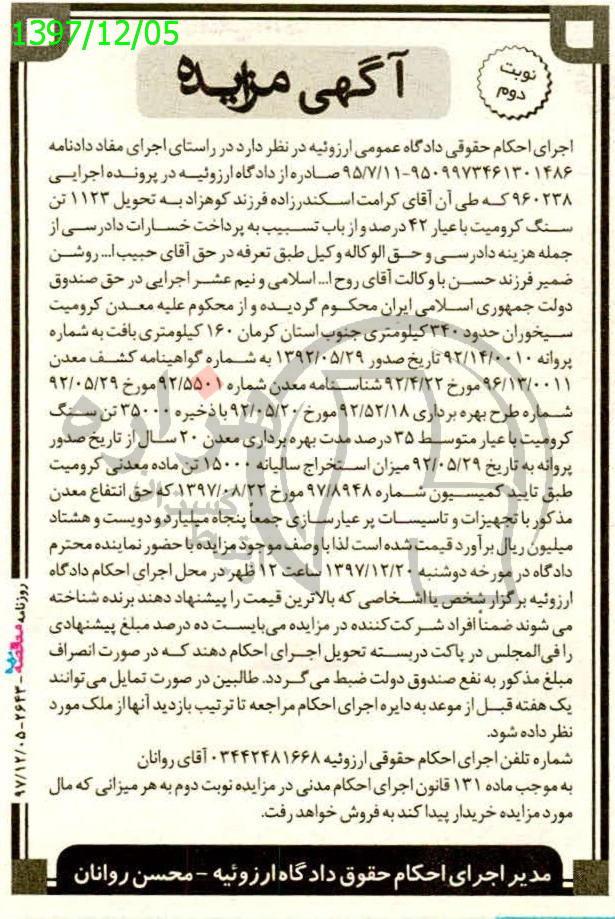 1397/12/05
آگهی مزایده
نوبت
دوم
اجرای احکام حقوقی دادگاه عمومی ارزوئیه در نظر دارد در راستای اجرای مفاد دادنامه
۹۵۰۹۹۷۳۴۶۱۳۰۱۴۸۶-۹۵/۷/۱۱ صادره از دادگاه ارزوئیه در پرونده اجرایی
۹۶۰۲۳۸ که طی آن آقای کرامت اسکندرزاده فرزند کوهزاد به تحویل ۱۱۲۳ تن
سنگ کرومیت با عیار ۴۲ درصد و از باب تسبیب به پرداخت خسارات دادرسی از
جمله هزینه دادرسی و حق الوکاله وکیل طبق تعرفه در حق آقای حبیب ا... روشن
ضمیر فرزند حسن با وکالت آقای روح ا... اسلامی و نیم عشر اجرایی در حق صندوق
دولت جمهوری اسلامی ایران محکوم گردیده و از محکوم علیه معدن کرومیت
سیخوران حدود ۳۴۰ کیلومتری جنوب استان کرمان ۱۶۰ کیلومتری بافت به شماره
پروانه ۹۲/۱۴/۰۰۱۰ تاریخ صدور ۱۳۹۲/۰۵/۲۹ به شماره گواهینامه کشف معدن
۹۶/۱۳/۰۰۱۱ مورخ ۹۲/۴/۲۲ شناسنامه معدن شماره ۹۲/۵۵۰۱ مورخ ۹۲/۰۵/۲۹
شماره طرح بهره برداری ۹۲/۵۲/۱۸ مورخ ۹۲/۰۵/۲۰ با ذخیره ۳۵۰۰۰ تن سنگ
کرومیت با عیار متوسط ۳۵ درصد مدت بهره برداری معدن ۲۰ سال از تاریخ صدور
پروانه به تاریخ ۹۲/۰۵/۲۹ میزان استخراج سالیانه ۱۵۰۰۰ تن ماده معدنی کرومیت
طبق تایید کمیسیون شماره ۹۷/۸۹۴۸ مورخ ۱۳۹۷/۰۸/۲۲ که حق انتفاع معدن
مذکور با تجهیزات و تاسیسات پر عیارسازی جمعاً پنجاه میلیارد و دویست و هشتاد
میلیون ریال برآورد قیمت شده است لذا با وصف موجود مزایده با حضور نماینده محترم
دادگاه در مورخه دوشنبه ۱۳۹۷/۱۲/۲۰ ساعت ۱۲ ظهر در محل اجرای احکام دادگاه
ارزوئیه برگزار شخص یا اشخاصی که بالاترین قیمت را پیشنهاد دهند برنده شناخته
می شوند ضمناً افراد شرکت کننده در مزایده می‌بایست ده درصد مبلغ پیشنهادی
را فی المجلس در پاکت دربسته تحویل اجرای احکام دهند که در صورت انصراف
مبلغ مذکور به نفع صندوق دولت ضبط می گردد. طالبین در صورت تمایل می توانند
یک هفته قبل از موعد به دایره اجرای احکام مراجعه تا ترتیب بازدید آنها از ملک مورد
نظر داده شود.
شماره تلفن اجرای احکام حقوقی ارزوئیه ۰۳۴۴۲۴۸۱۶۶۸ آقای روانان
به موجب ماده ۱۳۱ قانون اجرای احکام مدنی در مزایده نوبت دوم به هر میزانی که مال
مورد مزایده خریدار پیدا کند به فروش خواهد رفت.
مدیر اجرای احکام حقوق دادگاه ارزوئیه - محسن روانان
روزنامه مناقصه مزایده - ۲۶۴۳-۹۷/۱۲/۰۵
هزاره